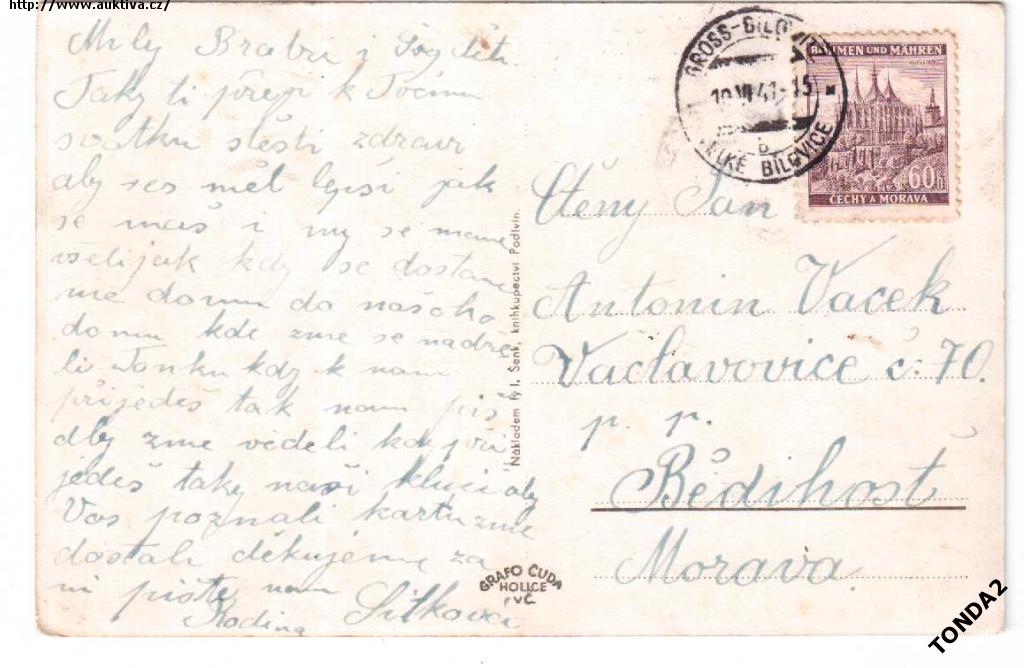 http://www.auktiva.cz/
Milý Bratru i
Taky ti přeji k Tvému
svatku štěsti zdravi
aby ses měl lepší jak
se maš i my se mame
všelijak kdy se dostane
me domu do našoho
domu kde zme se nadřé
li Tonku kdy k nam
přijedeš tak nam piš
aby zme věděli kdy při
jedeš taky naši kluci aby
Vas poznali kartu zme
dostali děkujeme za
ni pište nam
Rodina Sitkovi
Nákladem fy I. Šenk, knihkupectví Podivín.
GRAFO ČUDA
HOLICE
VČ.
GROSS-BILOWITZ
10.VI.41-15
b
VELKÉ BÍLOVICE
BÖHMEN UND MÄHREN
60h
ČECHY A MORAVA
Ctěny Pan
Antonin Vacek
Vaclavovice č. 70.
p. p.
Bědihošt
Morava
TONDA2